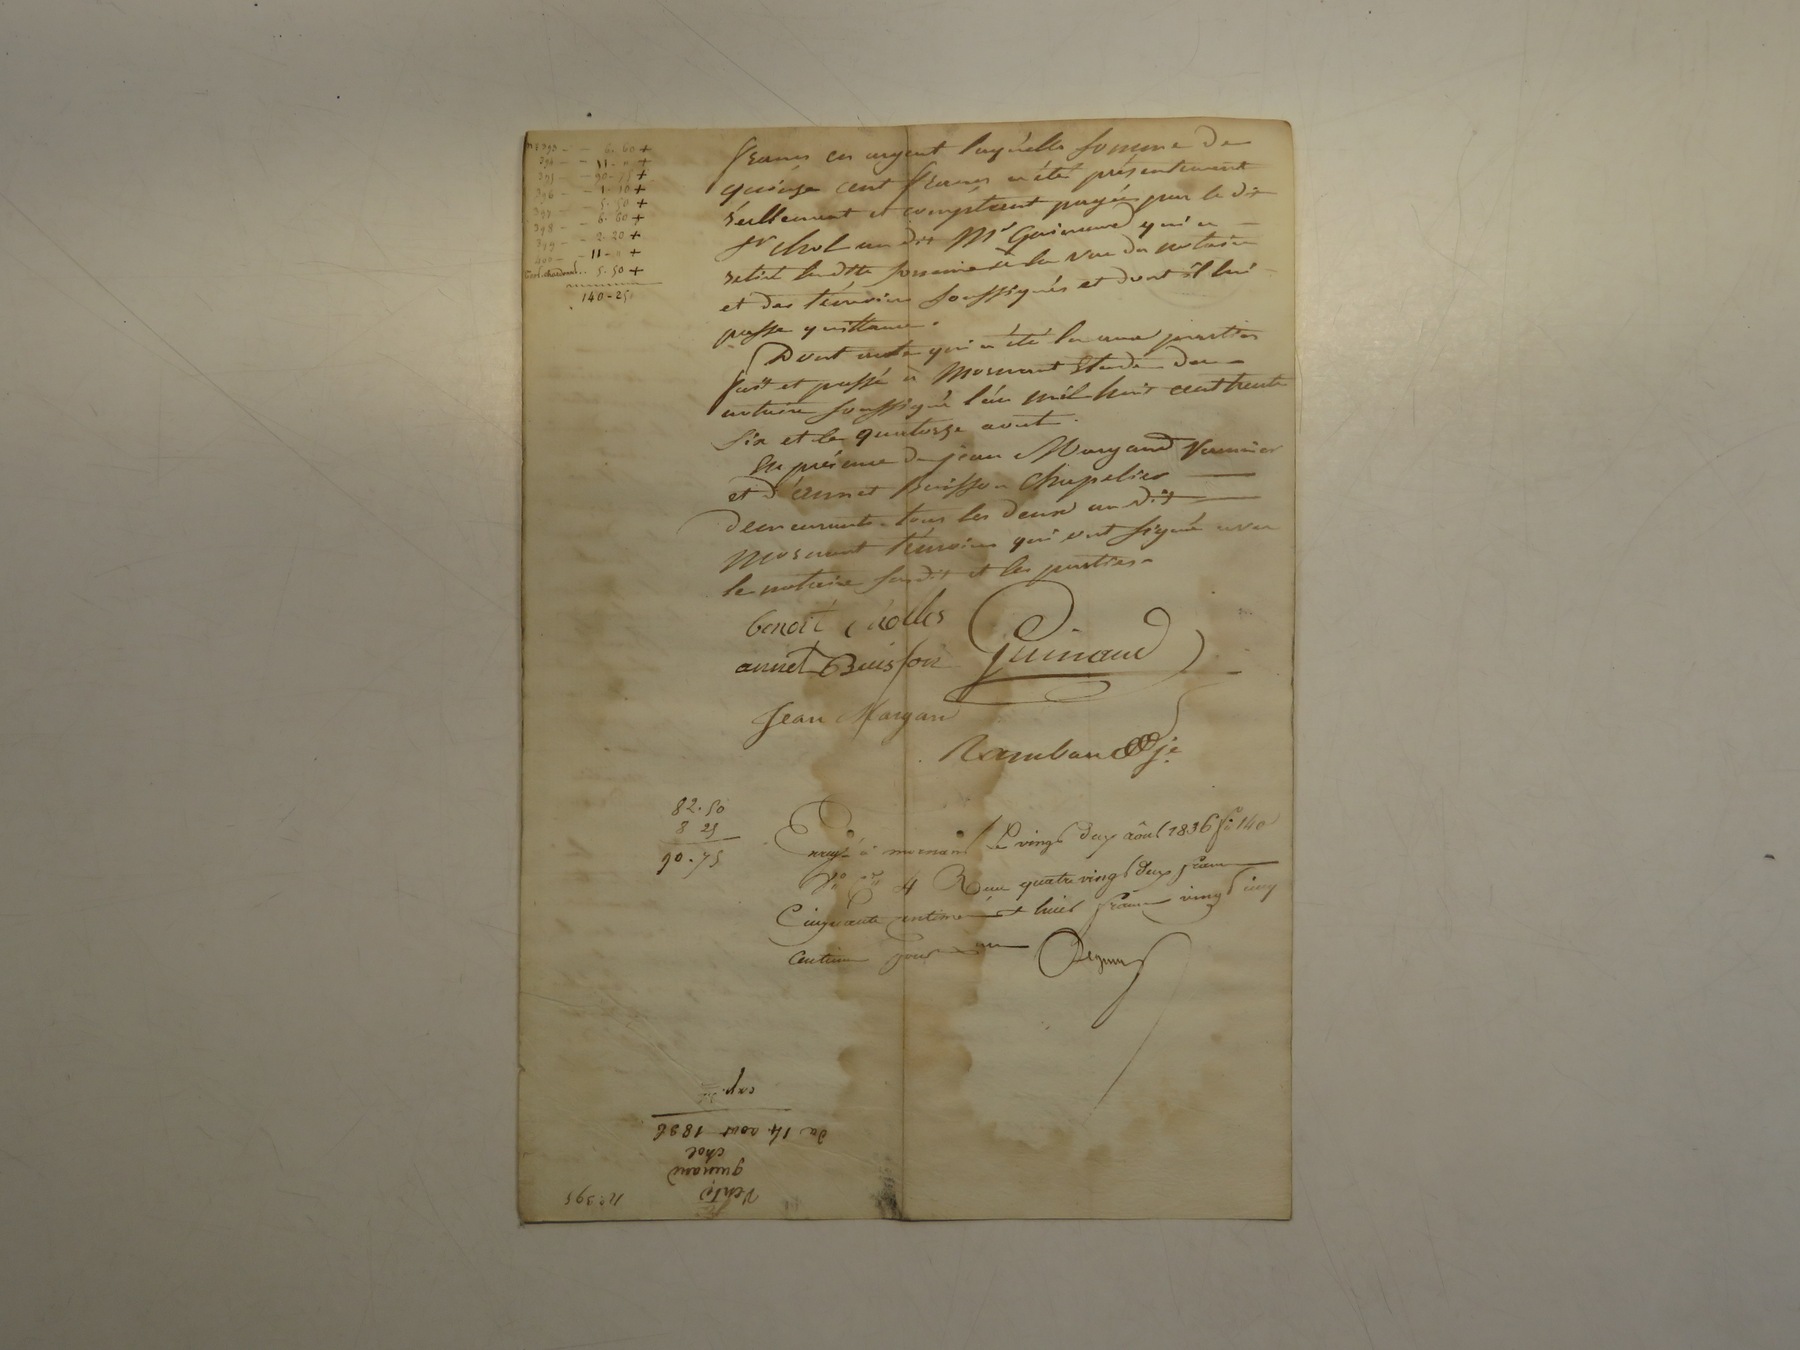 n° 393 - - 6.60 +
394 - - 11 - " +
395 - - 90 - 75 +
396 - - 1.10 +
397 - - 5.50 +
398 - - 6.60 +
399 - - 2.20 +
400 - - 11 - " +
5.50 +
140-25
francs en argent laquelle somme de
quinze cent francs a été présentement
réellement et comptant payée par le dit
Sr Chol au dit Mr Guinand qui a
retiré la dtte somme à la vue du notaire
et des témoins soussignés et dont il lui
passe quittance.
Dont acte qui a été lu aux parties
fait et passé à Mornant étude du
notaire soussigné l'an mil huit cent trente
six et le quatorze août.
En présence de jean Margand
et d'annet Buisson Chapelier
demeurants tous les deux au dit
Mornant témoins qui ont signé avec
le notaire susdit et les parties.
benoit
annet Buisson Guinand
Jean Margan
Rambaud je
82.50
8 25
90.75
à mornant Le vingt deux août 1836 f° 140
Reçu quatre vingt deux francs
Cinquante centimes et huit francs vingt cinq
centimes pour
exp.
du 14 aout 1836
chol
guinand
Vente
N° 395